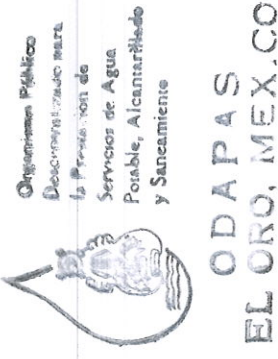 Organismo Público
Descentralizado para
la Prestación de
Servicios de Agua
Potable, Alcantarillado
y Saneamiento
ODAPAS
EL ORO, MEX.CO